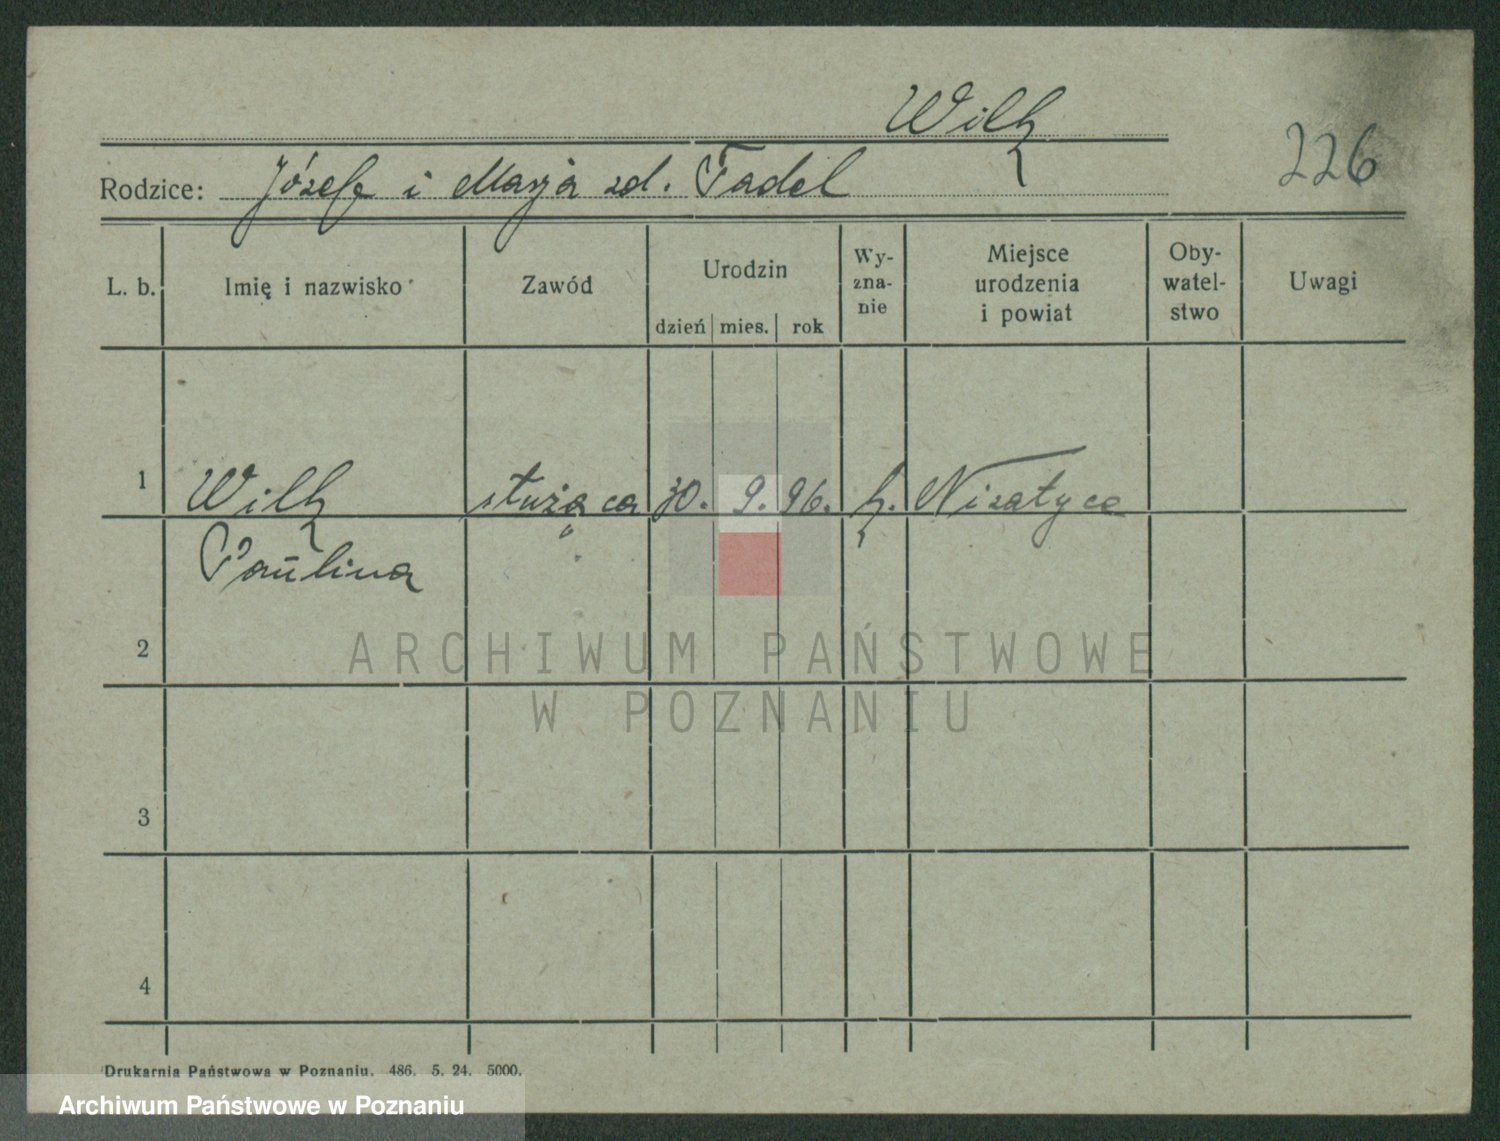 Wilk
226
Rodzice: Józef i Marja zd. Fadel
L. b. Imię i nazwisko Zawód Urodzin dzień mies. rok Wy-zna-nie Miejsce urodzenia i powiat Oby-watel-stwo Uwagi
1 Wilk służąca 30. 9. 96. k. Nizatyce
Paulina
2
ARCHIWUM PAŃSTWOWE
W POZNANIU
3
4
Drukarnia Państwowa w Poznaniu. 486. 5. 24. 5000.
Archiwum Państwowe w Poznaniu